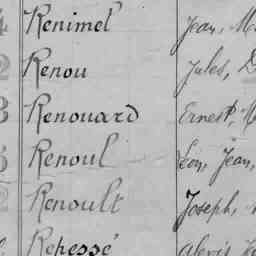 Renimel Jean, M
Renou Jules, D
Renouard Ernest, M
Renoul Léon, Jean,
Renoult Joseph,
Rehessé Alexis